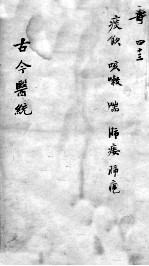 寿 四十三
痰飲 咳嗽 喘 肺痿 肺癰
古今醫統